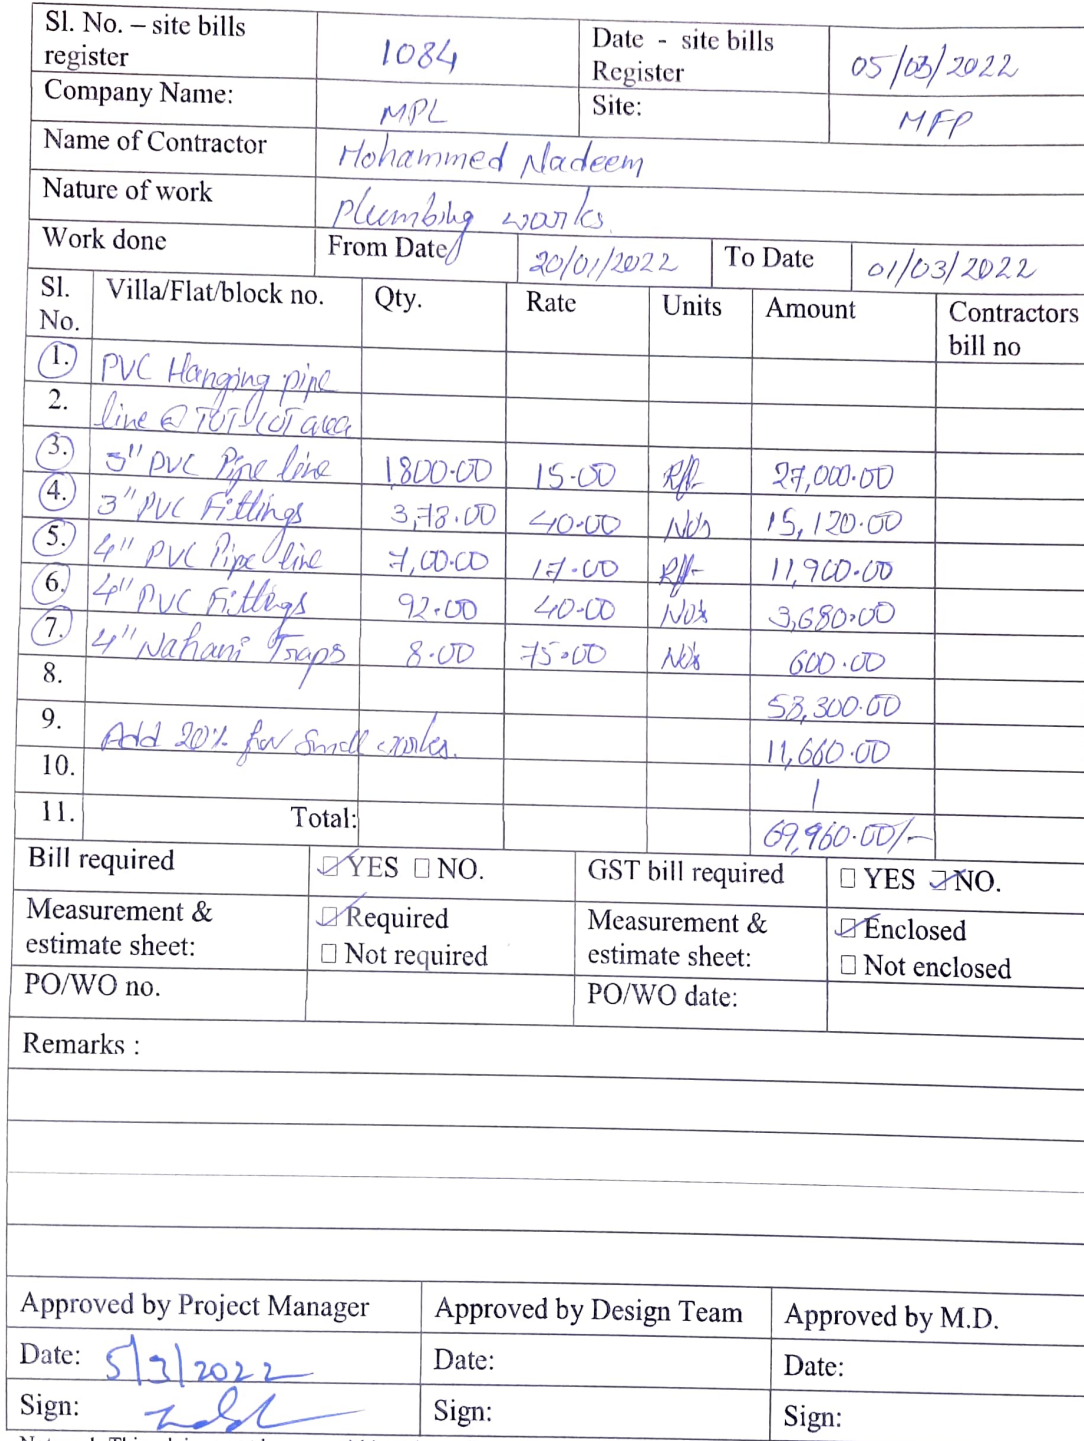 Sl. No. – site bills register 1084 Date - site bills Register 05/03/2022
Company Name: MPL Site: MFP
Name of Contractor Mohammed Nadeem
Nature of work Plumbing works.
Work done From Date 20/01/2022 To Date 01/03/2022
Sl. No. Villa/Flat/block no. Qty. Rate Units Amount Contractors bill no
1. PVC Hanging pipe
2. line @ TOT-LOT area
3. 3" PVC Pipe line 1800.00 15.00 Rft 27,000.00
4. 3" PVC Fittings 3,78.00 40.00 No's 15,120.00
5. 4" PVC Pipe line 7,00.00 17.00 Rft 11,900.00
6. 4" PVC Fittings 92.00 40.00 No's 3,680.00
7. 4" Nahani Traps 8.00 75.00 No's 600.00
8. 58,300.00
9. Add 20% for Small works. 11,660.00
10.
11. Total: 69,960.00/-
Bill required YES NO. GST bill required YES NO.
Measurement & estimate sheet: Required Not required Measurement & estimate sheet: Enclosed Not enclosed
PO/WO no. PO/WO date:
Remarks :
Approved by Project Manager Approved by Design Team Approved by M.D.
Date: 5/3/2022 Date: Date:
Sign: Sign: Sign: